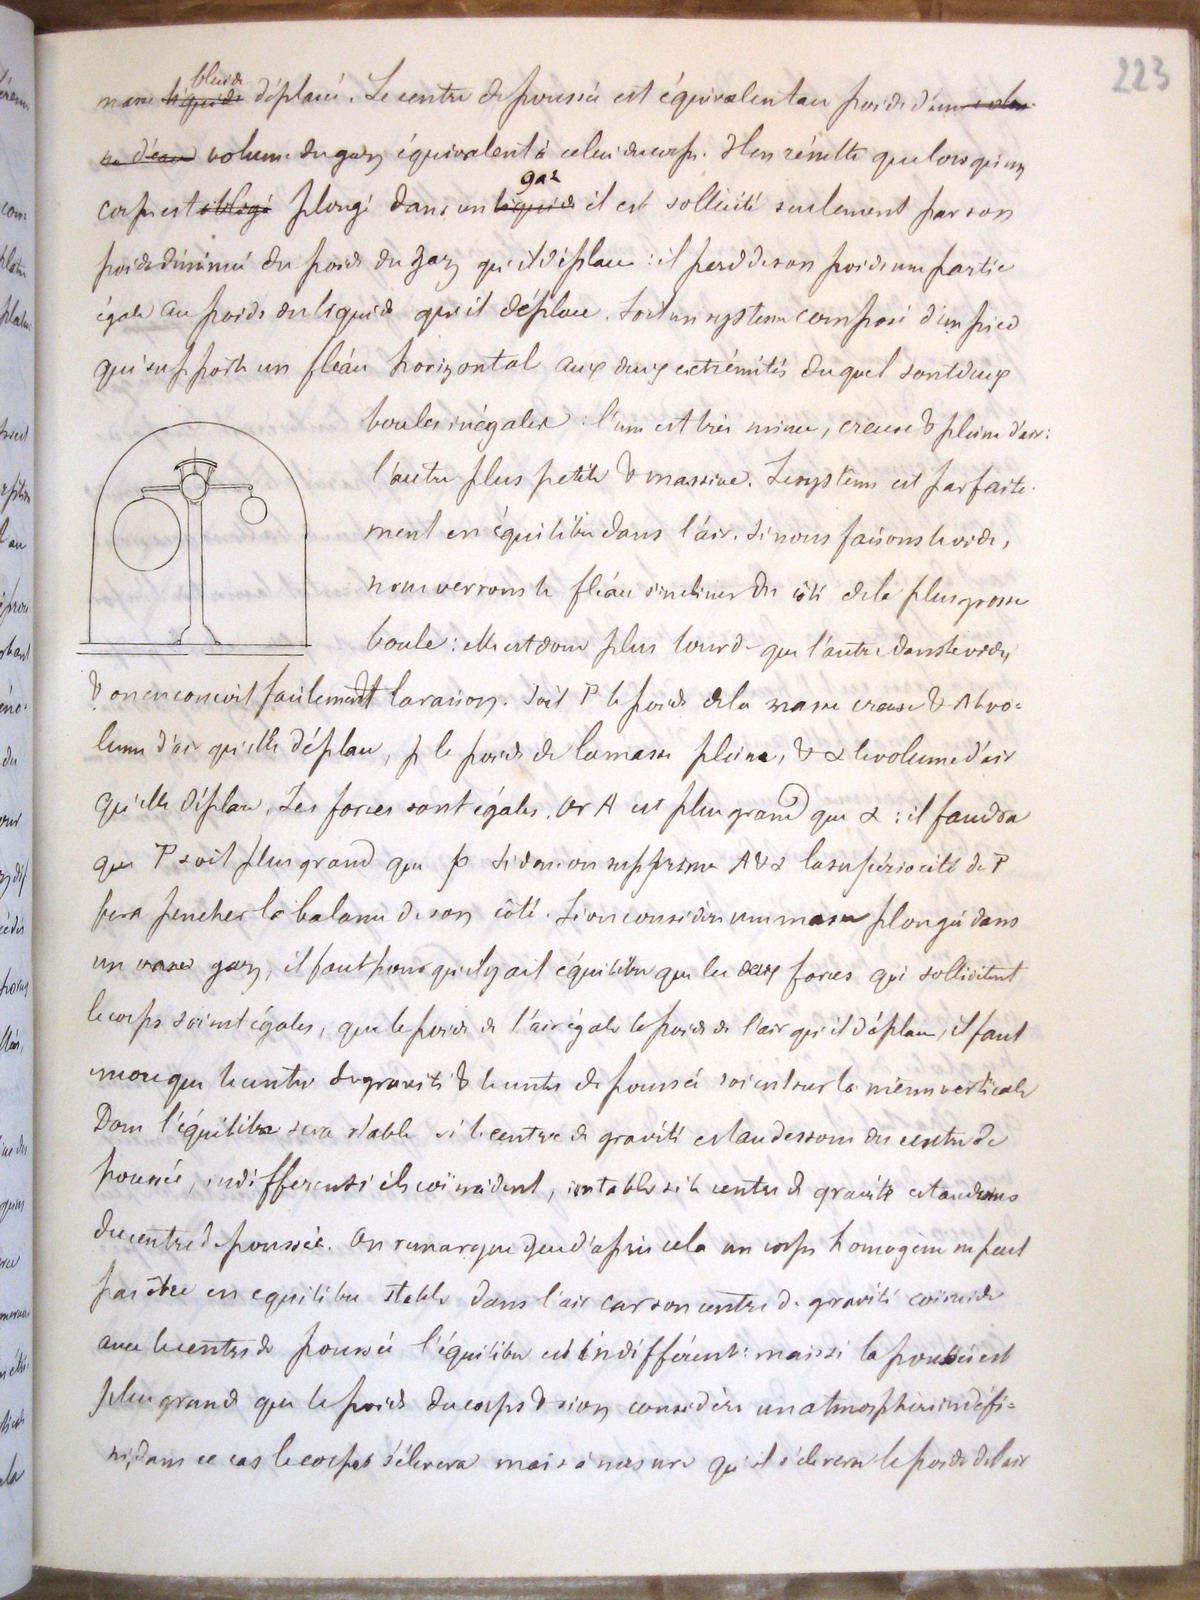 223
masse liquide fluide déplacée. Le centre de poussée est équivalent au poids d'un volu-
me d'eau volume du gaz équivalent à celui du corps. Il en résulte que lorsqu'un
corps est obligé plongé dans un liquide gaz il est sollicité seulement par son
poids diminué du poids du gaz qu'il déplace : il perd de son poids une partie
égale au poids du liquide qu'il déplace. Soit un système composé d'un pied
qui supporte un fléau horizontal aux deux extrémités duquel sont deux
boules inégales : l'une est très mince, creuse & pleine d'air :
l'autre plus petite & massive. Le système est parfaite-
ment en équilibre dans l'air. Si nous faisons le vide,
nous verrons le fléau s'incliner du côté de la plus grosse
boule : elle est donc plus lourde que l'autre dans le vide,
& on en conçoit facilement la raison. Soit P le poids de la masse creuse & A le vo-
lume d'air qu'elle déplace, p le poids de la masse pleine, & α le volume d'air
qu'elle déplace. Les forces sont égales. Or A est plus grand que α : il faudra
que P soit plus grand que p Si donc on supprime A & α la supériorité de P
fera pencher la balance de son côté. Si on considère une masse plongée dans
un gaz, il faut pour qu'il y ait équilibre que les deux forces qui sollicitent
le corps soient égales, que le poids de l'air égale le poids de l'air qu'il déplace, il faut
encore que le centre de gravité & le centre de poussée soient sur la même verticale
Donc l'équilibre sera stable si le centre de gravité est au dessous du centre de
poussée, indifférent s'ils coïncident, instable si le centre de gravité est au dessus
du centre de poussée. On remarque que d'après cela un corps homogène ne peut
pas être en equilibre stable dans l'air car son centre de gravité coïncide
avec le centre de poussée l'équilibre est indifférent : mais si la poussée est
plus grande que le poids du corps & si on considère un atmosphère indéfi-
ni, dans ce cas le corps s'élevera mais à mesure qu'il s'élevera le poids de l'air